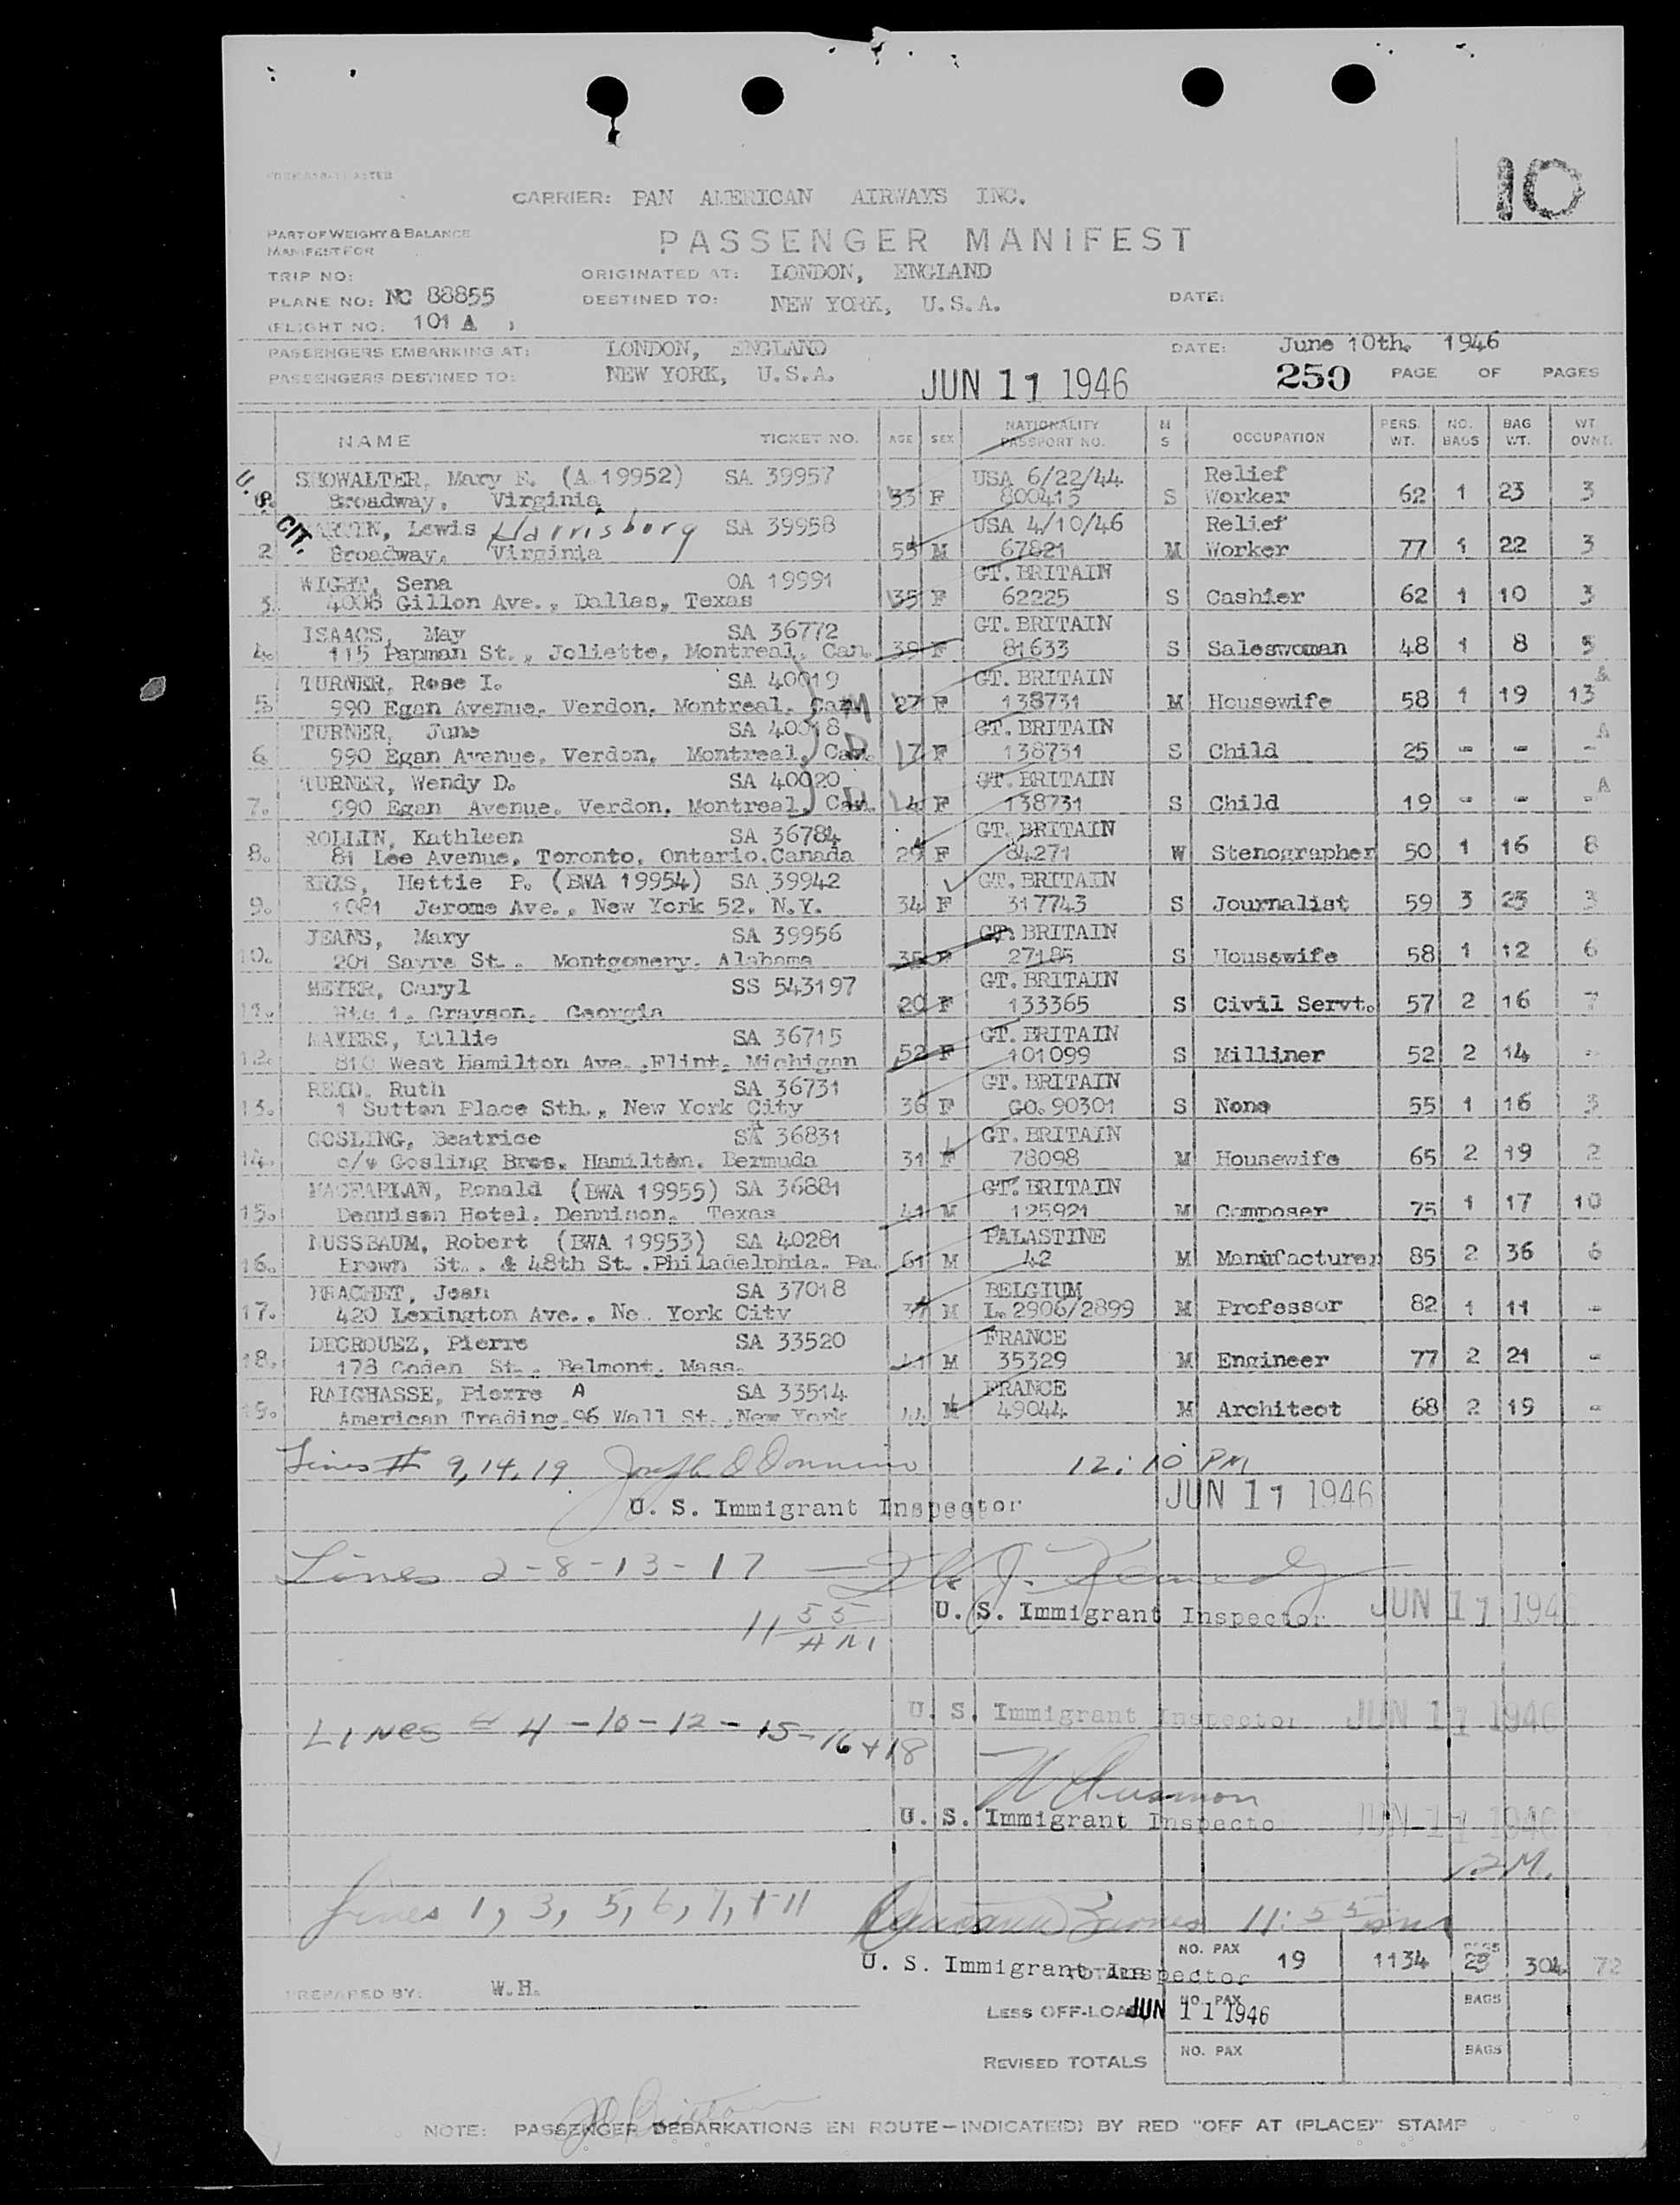 10
CARRIER: PAN AMERICAN AIRWAYS INC.
PART OF WEIGHT & BALANCE
MANIFEST FOR
PASSENGER MANIFEST
TRIP NO:
ORIGINATED AT: LONDON, ENGLAND
PLANE NO: NC 88855
DESTINED TO: NEW YORK, U.S.A.
DATE:
(FLIGHT NO: 101 A )
PASSENGERS EMBARKING AT: LONDON, ENGLAND
DATE: June 10th. 1946
PASSENGERS DESTINED TO: NEW YORK, U.S.A.
JUN 11 1946
250 PAGE OF PAGES
NAME TICKET NO. AGE SEX NATIONALITY PASSPORT NO. M S OCCUPATION PERS. WT. NO. BAGS BAG WT. WT. OVWT.
U.S. CIT.
SHOWALTER, Mary E. (A 19952) SA 39957 USA 6/22/44 Relief
Broadway, Virginia 33 F 800415 S Worker 62 1 23 3
MARTIN, Lewis Harrisborg SA 39958 USA 4/10/46 Relief
2 Broadway, Virginia 55 M 67821 M Worker 77 1 22 3
WIGHT, Sena OA 19991 GT. BRITAIN
3. 4008 Gillon Ave., Dallas, Texas 35 F 62225 S Cashier 62 1 10 3
ISAACS, May SA 36772 GT. BRITAIN
4. 115 Papman St., Joliette, Montreal, Can. 39 F 81633 S Saleswoman 48 1 8 5
TURNER, Rose I. SA 40019 GT. BRITAIN
5. 990 Egan Avenue, Verdon, Montreal, Can. M 27 F 138731 M Housewife 58 1 19 13 A
TURNER, June SA 40018 GT. BRITAIN
6 990 Egan Avenue, Verdon, Montreal, Can. D 7 F 138731 S Child 25 - - - A
TURNER, Wendy D. SA 40020 GT. BRITAIN
7. 990 Egan Avenue, Verdon, Montreal, Can. D 4 F 138731 S Child 19 - - - A
ROLLIN, Kathleen SA 36784 GT. BRITAIN
8. 81 Lee Avenue, Toronto, Ontario, Canada 29 F 84271 W Stenographer 50 1 16 8
ERIS, Hettie P. (BWA 19954) SA 39942 GT. BRITAIN
9. 1081 Jerome Ave., New York 52, N.Y. 34 F 317743 S Journalist 59 3 23 3
JEANS, Mary SA 39956 GT. BRITAIN
10. 201 Sayre St., Montgomery, Alabama 35 F 27185 S Housewife 58 1 12 6
MEYER, Caryl SS 543197 GT. BRITAIN
11. Rte 1, Grayson, Georgia 20 F 133365 S Civil Servt. 57 2 16 7
MAYERS, Lillie SA 36715 GT. BRITAIN
12. 810 West Hamilton Ave., Flint, Michigan 52 F 101099 S Milliner 52 2 14 -
Ruth SA 36731 GT. BRITAIN
13. 1 Sutton Place Sth., New York City 36 F GO. 90301 S None 55 1 16 3
GOSLING, Beatrice SA 36831 GT. BRITAIN
14. c/o Gosling Bros, Hamilton, Bermuda 31 F 78098 M Housewife 65 2 19 2
MACFARLAN, Ronald (BWA 19955) SA 36881 GT. BRITAIN
15. Dennison Hotel, Dennison, Texas 41 M 125921 M Composer 75 1 17 10
NUSSBAUM, Robert (BWA 19953) SA 40281 PALASTINE
16. Brown St., & 48th St., Philadelphia, Pa. 61 M 42 M Manufacturer 85 2 36 6
BRACHET, Jean SA 37018 BELGIUM
17. 420 Lexington Ave., Ne York City 37 M L. 2906/2899 M Professor 82 1 11 -
DECROUEZ, Pierre SA 33520 FRANCE
18. 178 Coden St., Belmont, Mass. 41 M 35329 M Engineer 77 2 21 -
RAIGHASSE, Pierre A SA 33514 FRANCE
19. American Trading, 96 Wall St., New York 44 M 49044 M Architect 68 2 19 -
Lines # 9, 14, 19 12:10 PM
U. S. Immigrant Inspector JUN 11 1946
Lines 2-8-13-17 J. Kennedy
11 55 AM U. S. Immigrant Inspector JUN 11 194
U. S. Immigrant Inspector JUN 11 1946
LINES # 4-10-12-15-16+18
U. S. Immigrant Inspecto JUN 11 1946
12 M.
Lines 1, 3, 5, 6, 7, + 11 11:55 am
U. S. Immigrant Inspector
NO. PAX 19 1134 BAGS 23 304 72
PREPARED BY: W.H.
LESS OFF-LOAD JUN 11 1946 NO. PAX BAGS
REVISED TOTALS NO. PAX BAGS
NOTE: PASSENGER DEBARKATIONS EN ROUTE—INDICATE(D) BY RED "OFF AT (PLACE)" STAMP